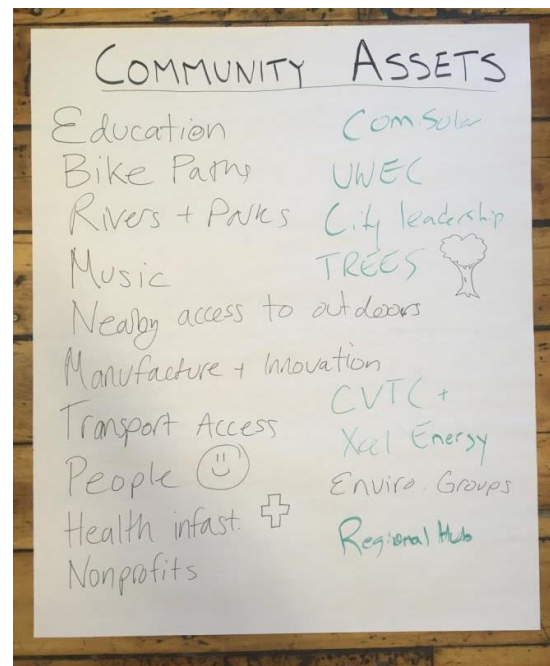 COMMUNITY ASSETS
Education
Bike Paths
Rivers + Parks
Music
Nearby access to outdoors
Manufacture + Innovation
Transport Access
People
Health infast.
Nonprofits
Com. Solar
UWEC
City leadership
TREES
CVTC +
Xcel Energy
Enviro. Groups
Regional Hub